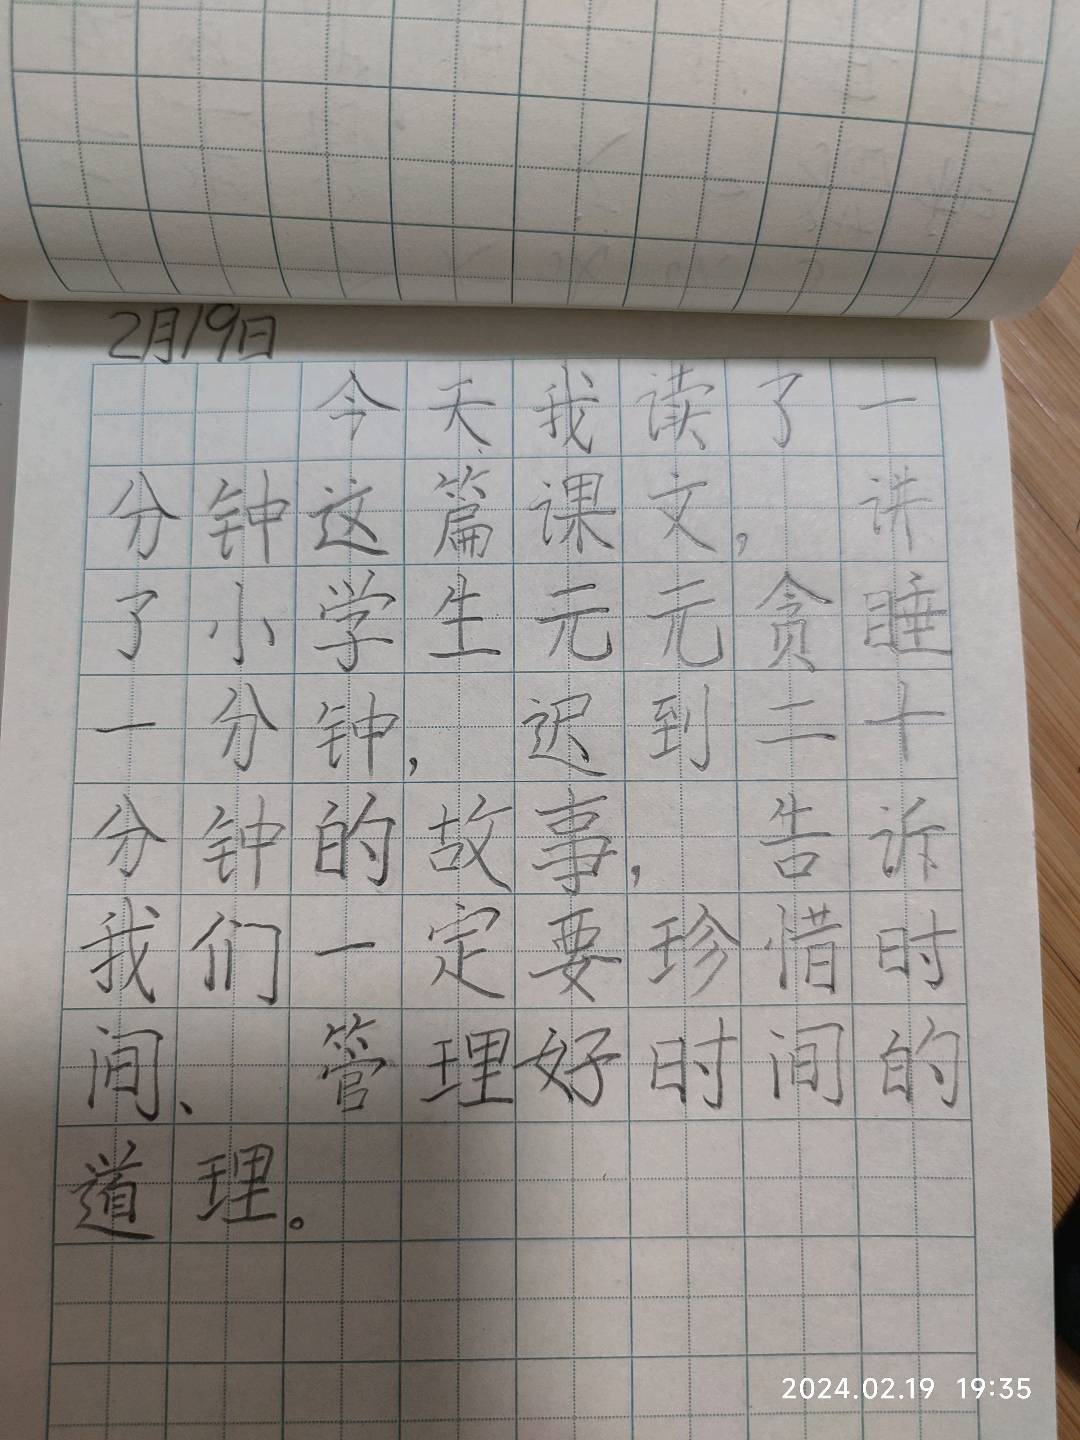 2月19日
今天我读了一
分钟这篇课文，讲
了小学生元元贪睡
一分钟，迟到二十
分钟的故事，告诉
我们一定要珍惜时
间、管理好时间的
道理。
2024.02.19 19:35